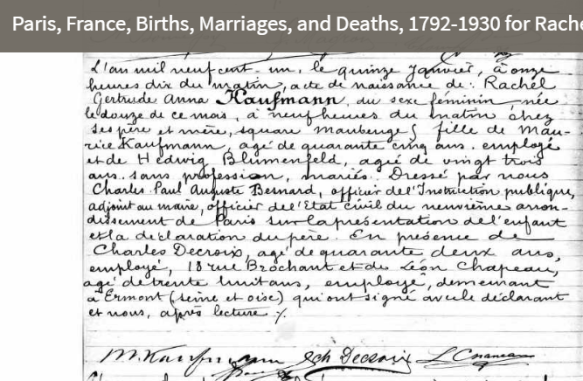 Paris, France, Births, Marriages, and Deaths, 1792-1930 for Rache
L'an mil neuf cent un, le quinze Janvier, à onze
heures dix du matin, acte de naissance de: Rachel
Gertrude Anna Kaufmann, du sexe féminin, née
le douze de ce mois, à neuf heures du matin chez
ses père et mère, square Maubeuge 5 fille de Mau-
rice Kaufmann, agé de quarante cinq ans, employé
et de Hedwig Blumenfeld, agée de vingt trois
ans, sans profession, mariés. Dressé par nous
Charles Paul Auguste Bernard, officier de l'Instruction publique,
adjoint au maire, officier de l'Etat civil du neuvième arron-
dissement de Paris sur la présentation de l'enfant
et la déclaration du père. En présence de
Charles Decroix, agé de quarante deux ans,
employé, 18 rue Brochant et de Léon Chapeau,
agé de trente huit ans, employé, demeurant
à Ermont (seine et oise) qui ont signé avec le déclarant
et nous, après lecture ./.
M. Kaufmann Ch Decroix L Chapeau